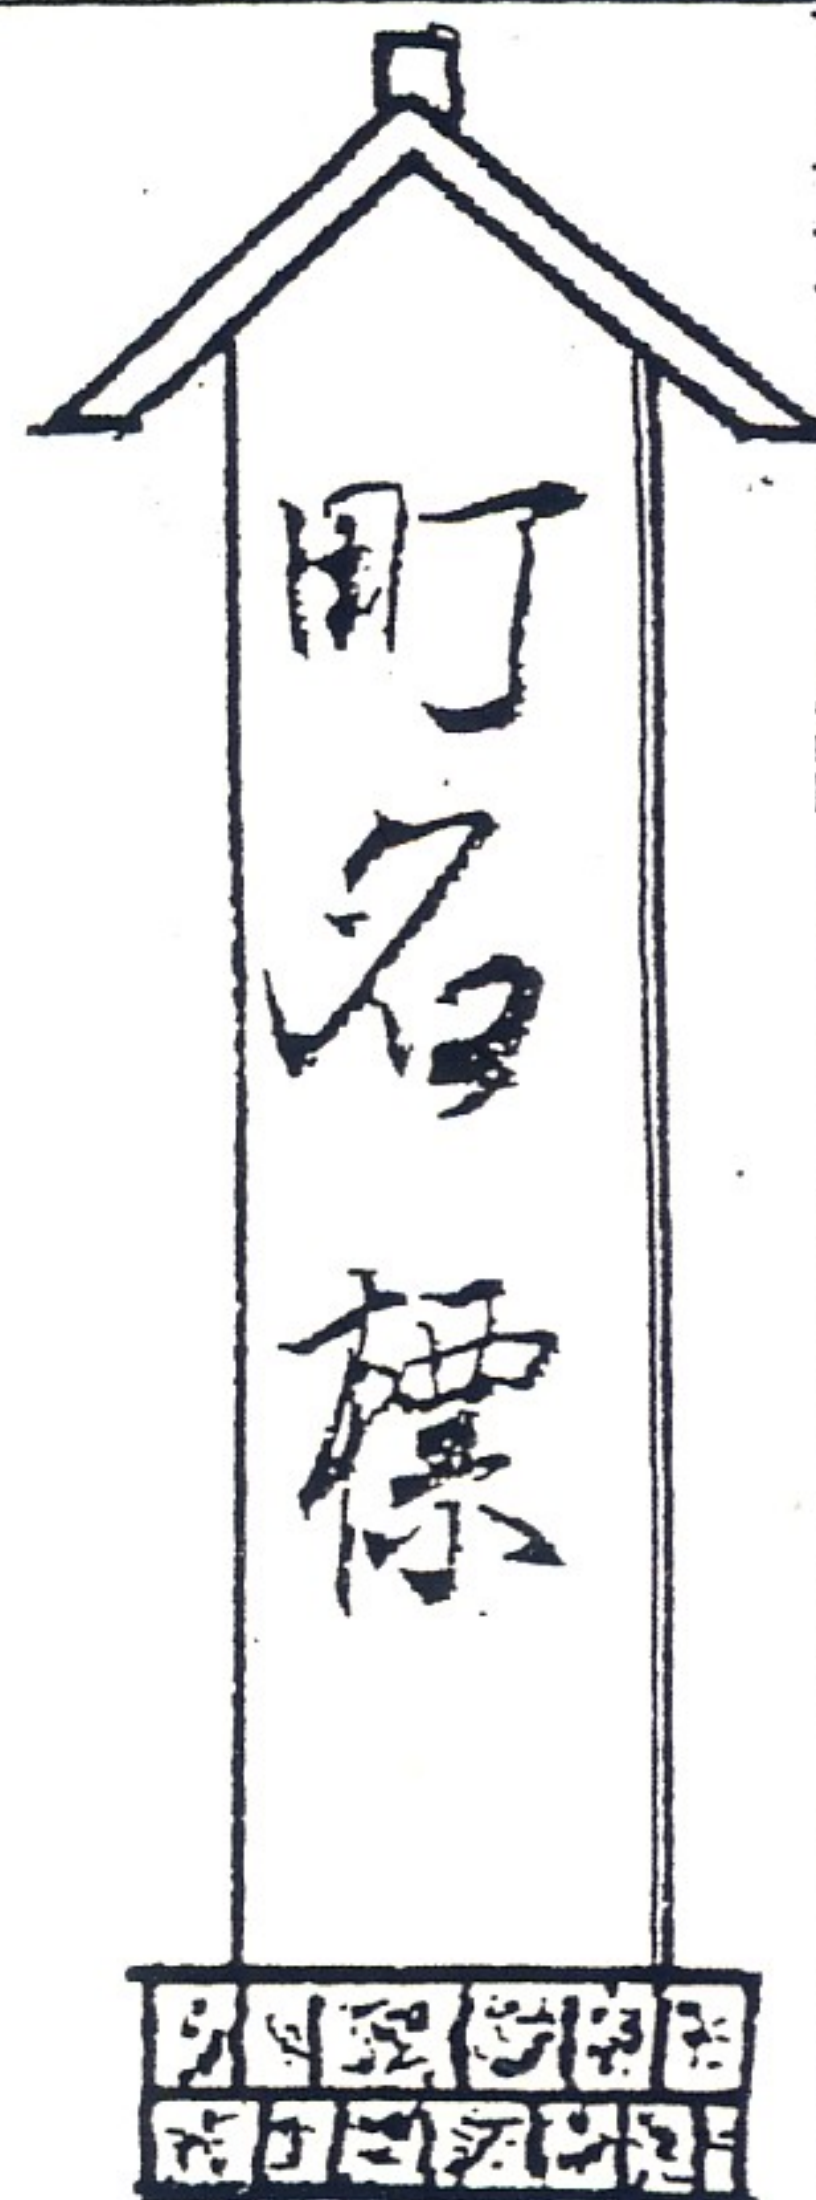 町名標